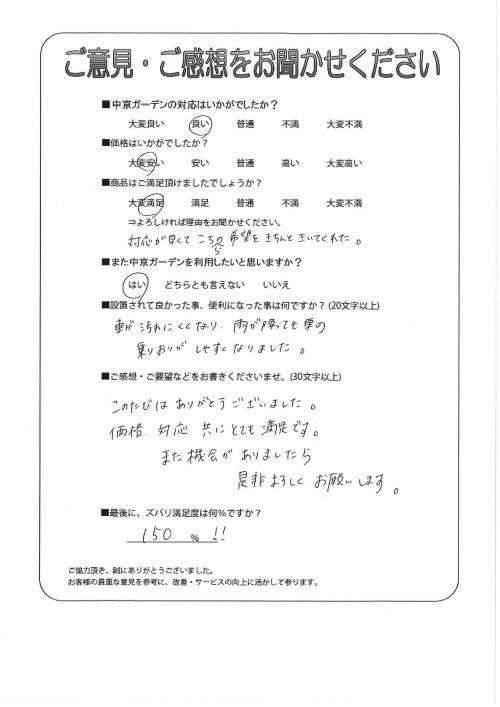 ご意見・ご感想をお聞かせください
■中京ガーデンの対応はいかがでしたか？
大変良い 良い 普通 不満 大変不満
■価格はいかがでしたか？
大変安い 安い 普通 高い 大変高い
■商品はご満足頂けましたでしょうか？
大変満足 満足 普通 不満 大変不満
⇒よろしければ理由をお聞かせください。
対応が早くて こちらの希望を きちんと きいてくれた。
■また中京ガーデンを利用したいと思いますか？
はい どちらとも言えない いいえ
■設置されて良かった事、便利になった事は何ですか？(20文字以上)
車が 汚れにくくなり、雨が降っても 車の
乗りおりが しやすくなりました。
■ご感想・ご要望などをお書きくださいませ。(30文字以上)
このたびは ありがとうございました。
価格、対応 共に とても 満足です。
また 機会が ありましたら
是非 よろしく お願いします。
■最後に、ズバリ満足度は何％ですか？
150 ％ !!
ご協力頂き、誠にありがとうございました。
お客様の貴重な意見を参考に、改善・サービスの向上に活かして参ります。